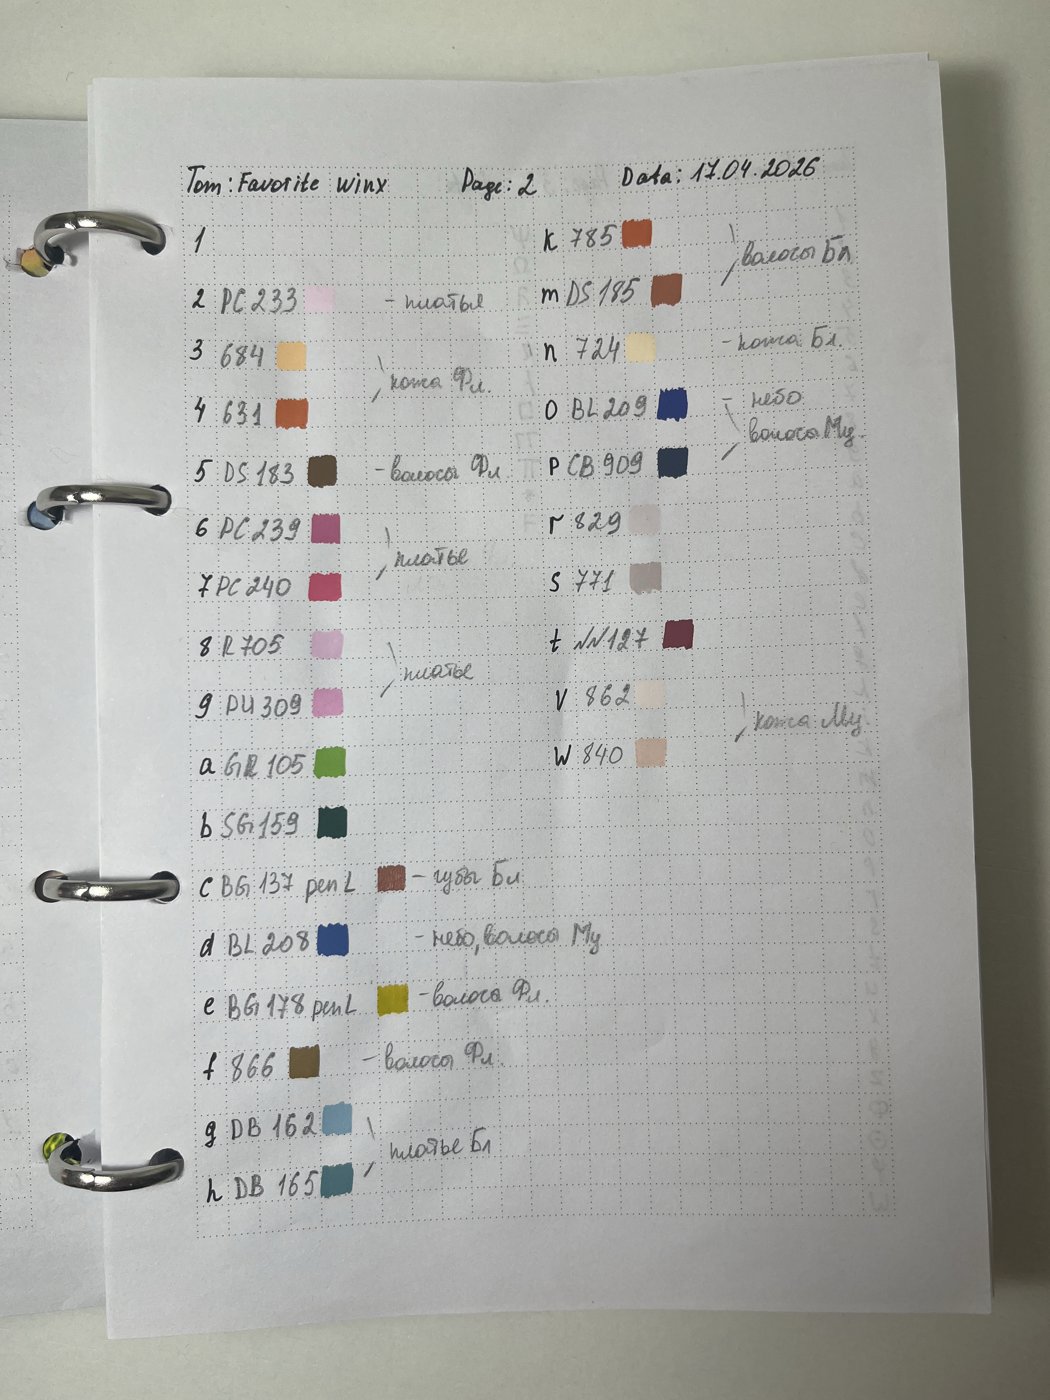 Tom: Favorite winx Page: 2 Data: 17.04.2026
1
2 PC 233 - платье
3 684
кожа Фл.
4 631
5 DS 183 - волосы Фл
6 PC 239
платье
7 PC 240
8 R 705
платье
9 PU 309
a GR 105
b SG 159
c BG 137 pen L - губы Бл
d BL 208 - небо, волосы Му
e BG 178 pen L - волосы Фл.
f 866 - волосы Фл.
g DB 162
платье Бл
h DB 165
k 785
волосы Бл
m DS 185
n 724 - кожа Бл.
o BL 209 - небо
волосы Му.
p CB 909
r 829
s 771
t NN 127
v 862
кожа Му.
w 840